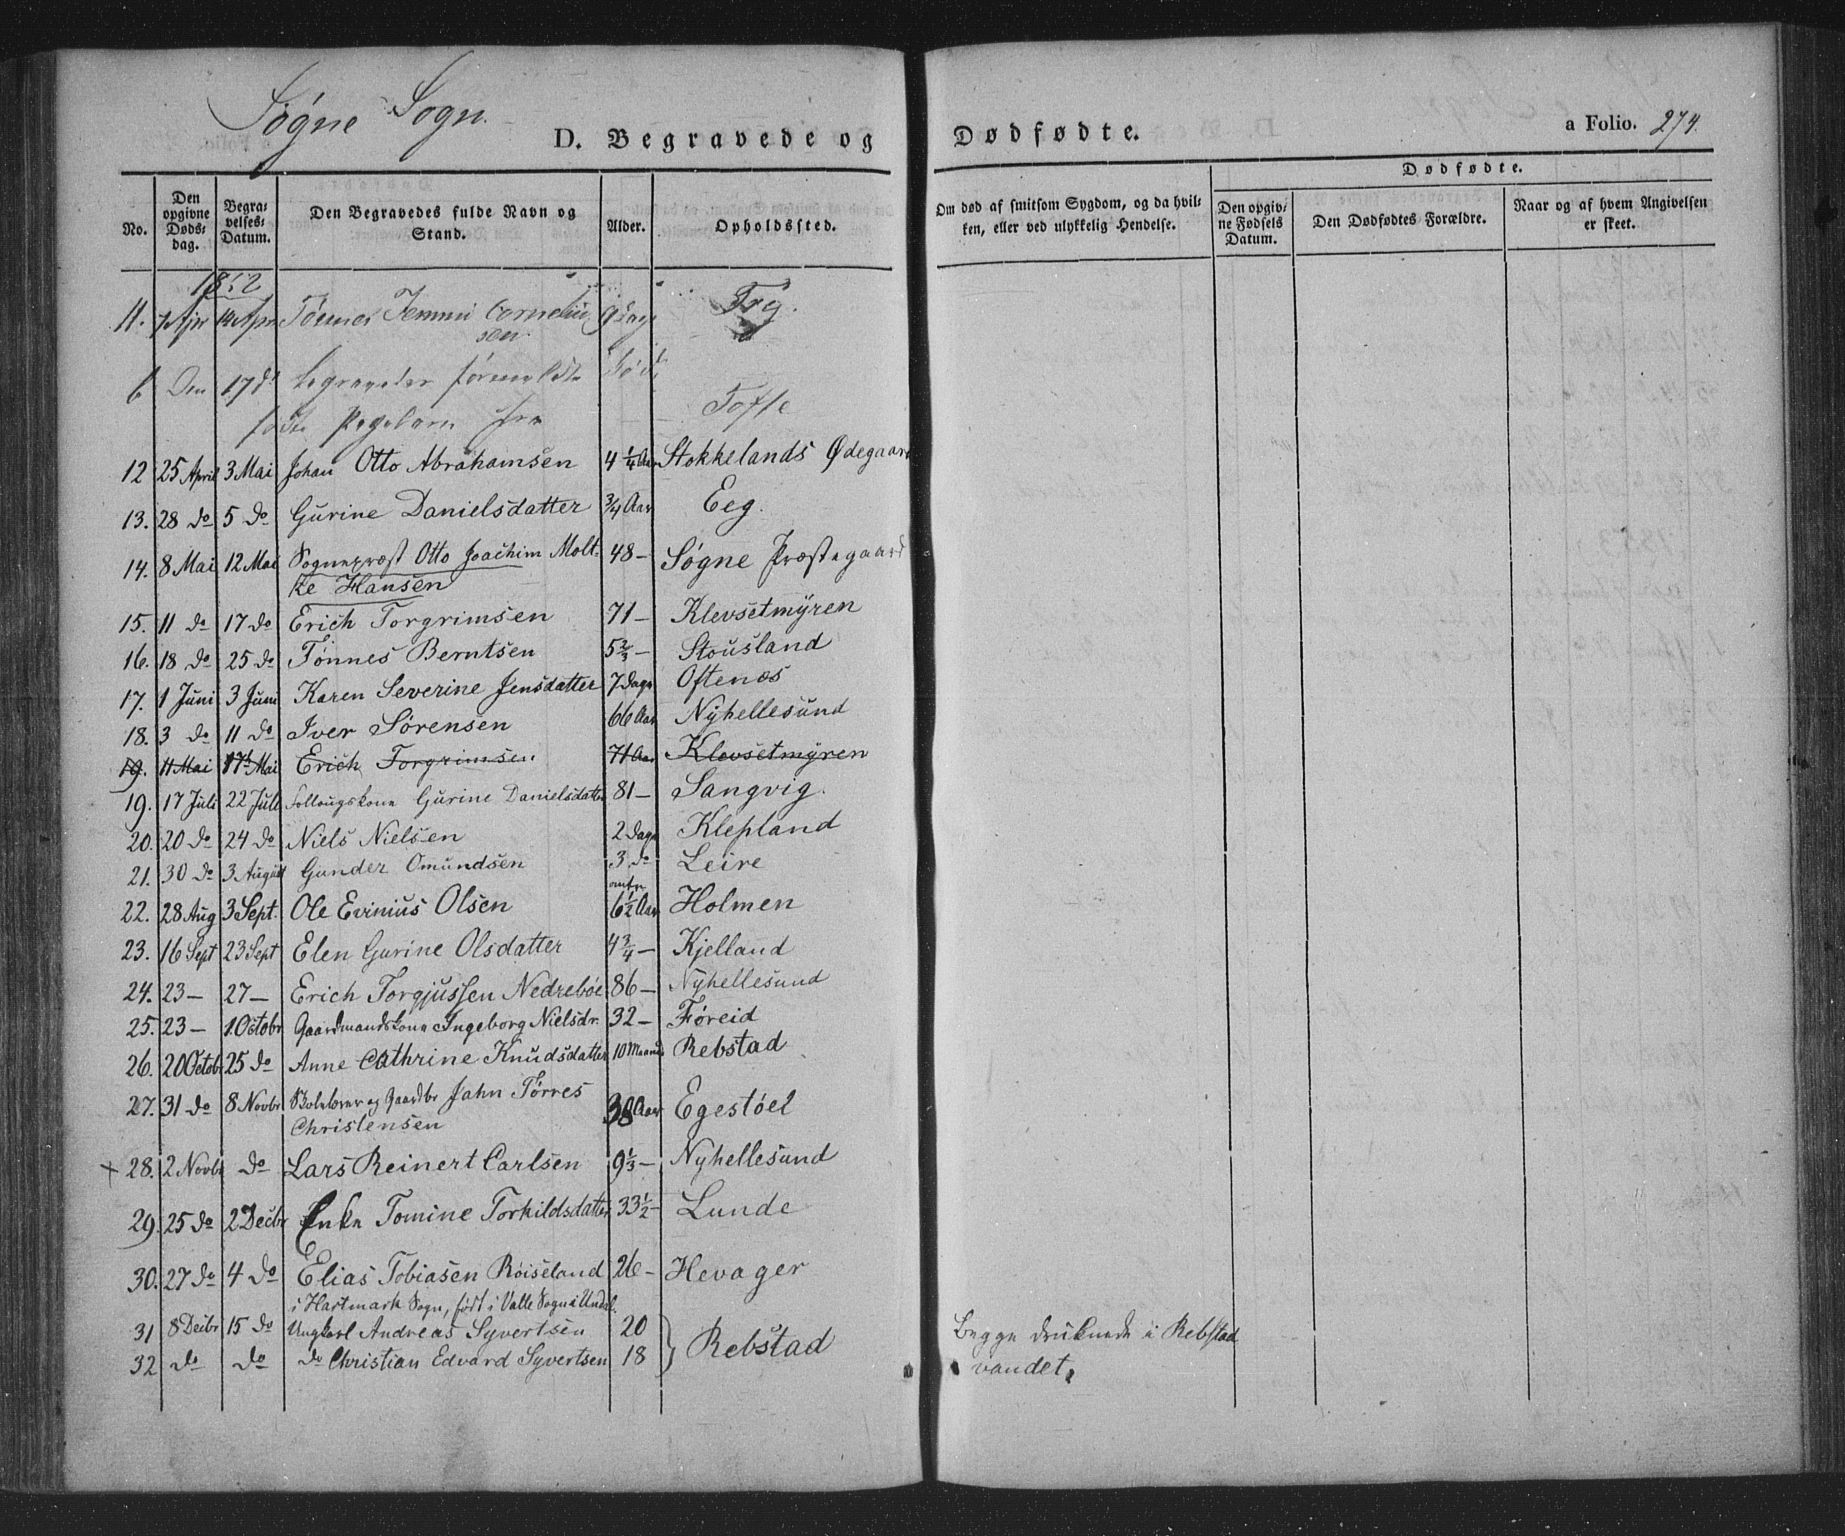 Søgne Sogn.
D. Begravede og Dødfødte. a Folio. 274.
Dødfødte.
No. Den opgivne Døds-dag. Begra-velses-Datum. Den Begravedes fulde Navn og Stand. Alder. Opholdssted. Om død af smitsom Sygdom, og da hvil-ken, eller ved ulykkelig Hendelse. Den opgiv-ne Fødsels Datum. Den Dødfødtes Forældre. Naar og af hvem Angivelsen er skeet.
1852
11. 7 Apr 14 Apr Tønnes Cornelius 9 Dage Try.
sen.
6 Den 17 do begravedes
fra Toffe
12 25 April 3 Mai Johan Otto Abrahamsen 4 1/4 Aar Stokkelands Ødegaard
13. 28 do 5 do Gurine Danielsdatter 3/4 Aar Eeg.
14. 8 Mai 12 Mai Sognepræst Otto Joachim Molt- 48 – Søgne Præstegaard
ke Hansen
15. 11 do 17 do Erich Torgrimsen 71 – Klevsetmÿren
16. 18 do 25 do Tønnes Berntsen 5 2/3 – Stousland
17. 1 Juni 3 Juni Karen Severine Jensdatter 7 Dage Oftenæs
18. 3 do 11 do Iver Sørensen 66 Aar Nÿhellesund
19. 11 Mai 17 Mai Erich Torgrimsen 71 Aar Klevsetmÿren
19. 17 Juli 22 Juli Follougskone Gurine Danielsdatter 81 – Sangvig.
20. 20 do 24 do Niels Nielsen 2 Dage Klepland
21. 30 do 3 August Gunder Omundsen 3 do Leire
omtr
22. 28 Aug 3 Sept. Ole Evinius Olsen 6 1/2 Aar Holmen
23. 16 Sept 23 Sept Elen Gurine Olsdatter 4 3/4 – Kjelland
24. 23 – 27 – Erich Torgjussen Nedrebøe 86 – Nÿhellesund
25. 23 – 1. Octobr Gaardmandskone Ingeborg Nielsdr. 32 – Føreid
26. 20 Octobr 25 do Anne Cathrine Knudsdatter 10 Maaned Rebstad
27. 31 do 8 Novbr Skolelærer og Gaardbr Jahn Tørres 38 Aar Egestøel
Christensen
+ 28. 2 Novbr do Lars Reinert Carlsen 9 1/3 – Nÿhellesund
29. 25 do 2 Decbr Enke Tomine Torkildsdatter 33 1/2 – Lunde
30. 27 do 4 do Elias Tobiasen Røiseland 26 – Hevager
i Hartmark Sogn, født i Valle Sogn i Undal.
31 8 Decbr 15 do Ungkarl Andreas Syvertsen 20 } Rebstad Begge druknede i Rebstad
32 do do do Christian Edvard Syvertsen 18 vandet.